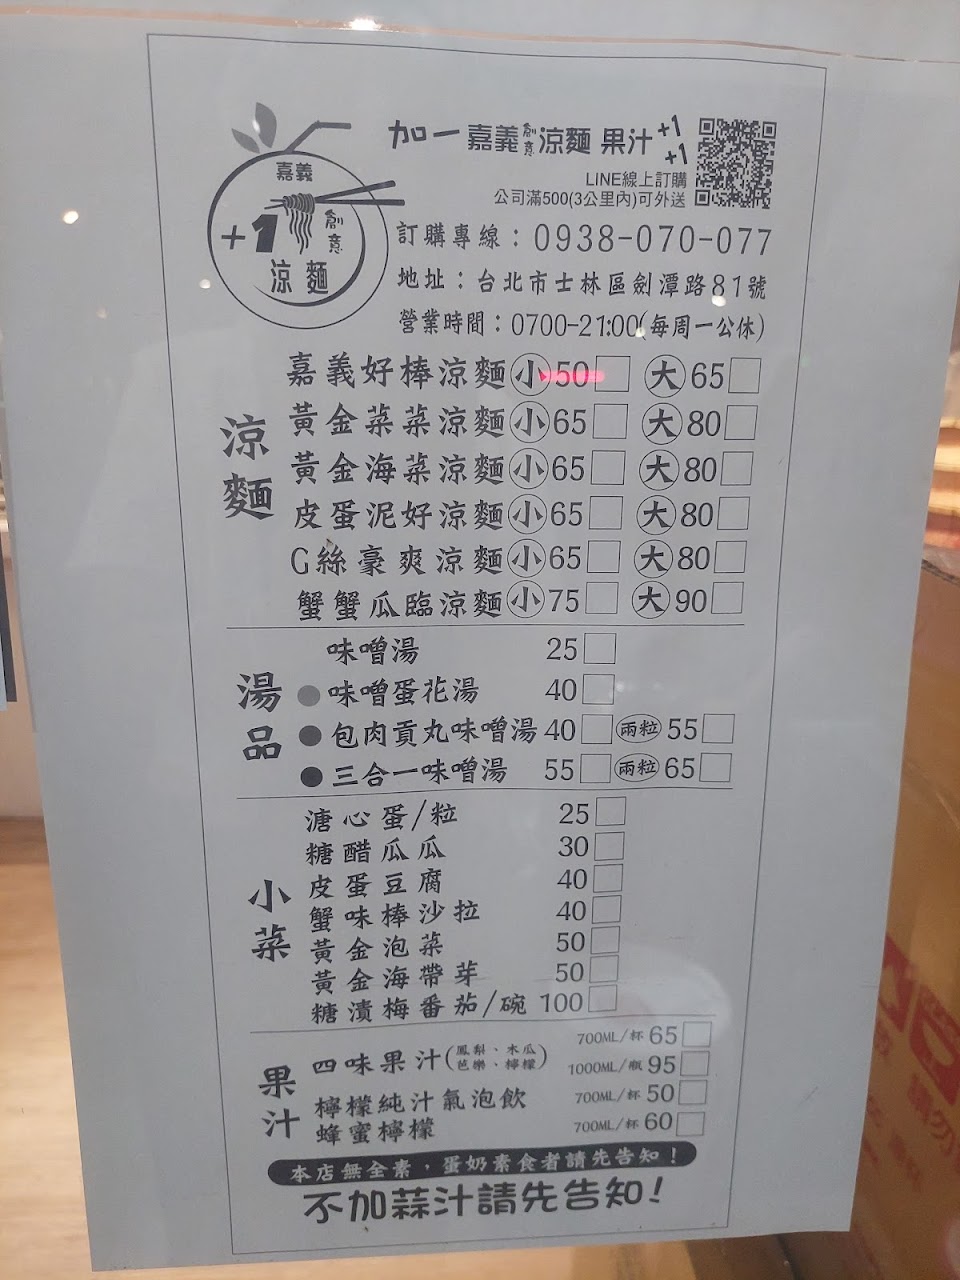 加一 嘉義創意涼麵 果汁+1+1
LINE線上訂購
公司滿500(3公里內)可外送
嘉義
+1
創意
涼麵
訂購專線：0938-070-077
地址：台北市士林區劍潭路81號
營業時間：0700-21:00(每周一公休)
涼麵
嘉義好棒涼麵 小50 大65
黃金菜菜涼麵 小65 大80
黃金海菜涼麵 小65 大80
皮蛋泥好涼麵 小65 大80
G絲豪爽涼麵 小65 大80
蟹蟹瓜臨涼麵 小75 大90
湯品
味噌湯 25
味噌蛋花湯 40
包肉貢丸味噌湯 40 兩粒 55
三合一味噌湯 55 兩粒 65
小菜
溏心蛋/粒 25
糖醋瓜瓜 30
皮蛋豆腐 40
蟹味棒沙拉 40
黃金泡菜 50
黃金海帶芽 50
糖漬梅番茄/碗 100
果汁
四味果汁(鳳梨、木瓜 芭樂、檸檬) 700ML/杯 65
1000ML/瓶 95
檸檬純汁氣泡飲 700ML/杯 50
蜂蜜檸檬 700ML/杯 60
本店無全素，蛋奶素食者請先告知！
不加蒜汁請先告知！
請勿